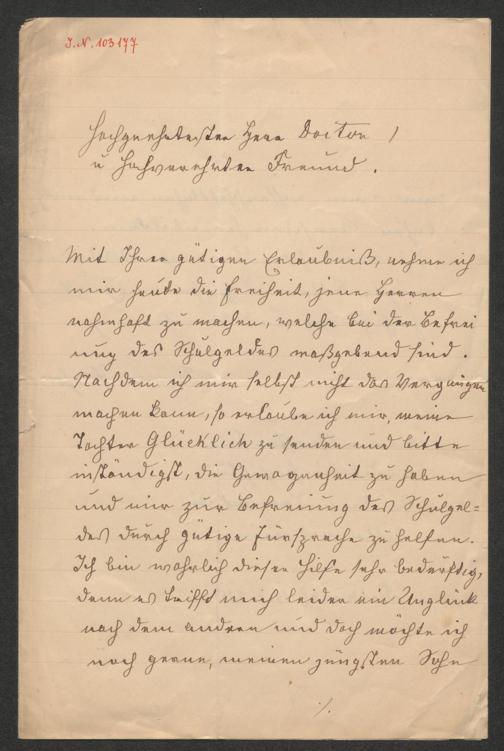 I.N. 103177
Hochgeehrtester Herr Doctor!
u hochverehrter Freund.
Mit Ihrer gütigen Erlaubniß, nehme ich
mir heute die Freiheit, jene Herren
nahmhaft zu machen, welche bei der Befrei
ung des Schulgeldes maßgebend sind.
Nachdem ich mir selbst nicht das Vergnügen
machen kann, so erlaube ich mir, meine
Tochter Glücklich zu senden und bitte
inständigst, die Gewogenheit zu haben
und mir zur Befreiung des Schulgel=
des durch gütige Fürsprache zu helfen.
Ich bin wahrlich dieser Hilfe sehr bedürftig,
denn es trifft mich leider ein Unglück
nach dem andern und doch möchte ich
noch gerne, meinen jüngsten Sohn
./.